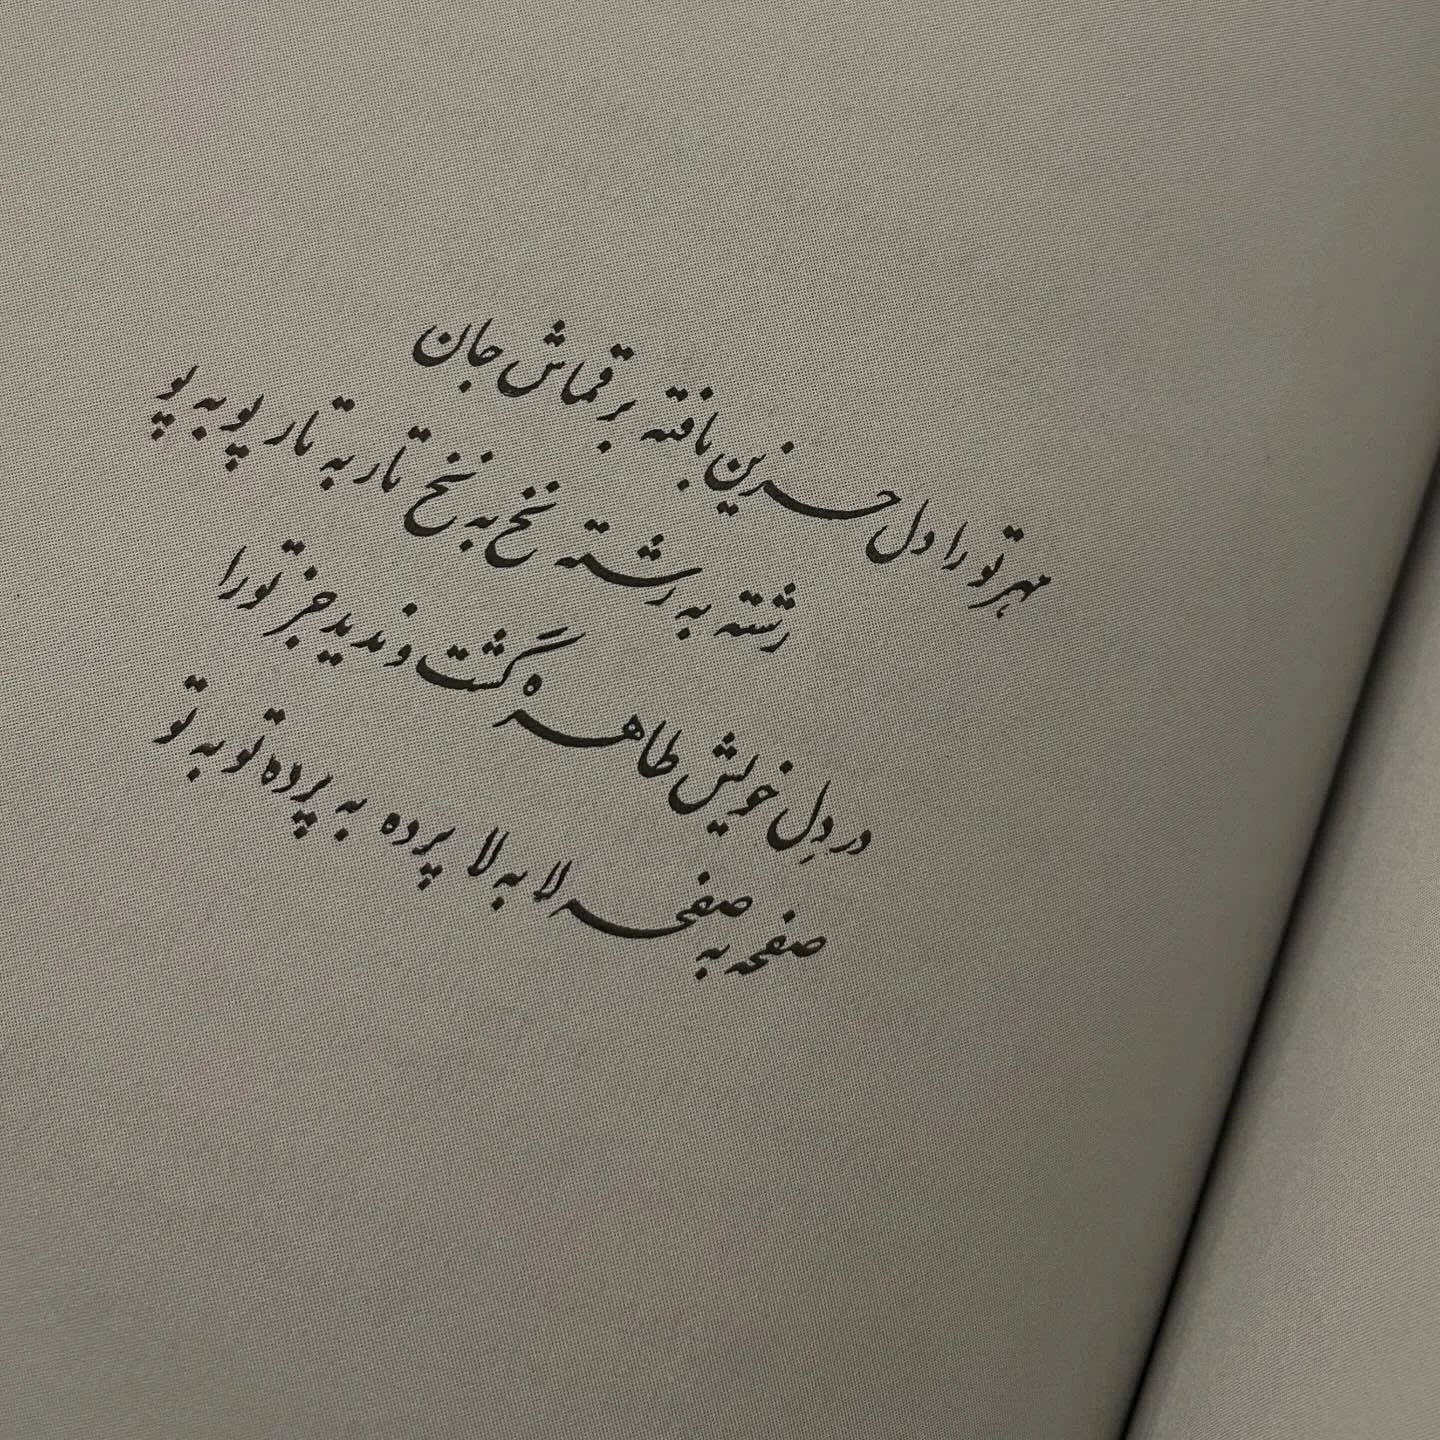 مهر تو را دل حزین بافته بر قماش جان
رشته به رشته نخ به نخ تار به تار پو به پو
در دلِ خویش طاهره گشت و ندید جز تو را
صفحه به صفحه لا به لا پرده به پرده تو به تو